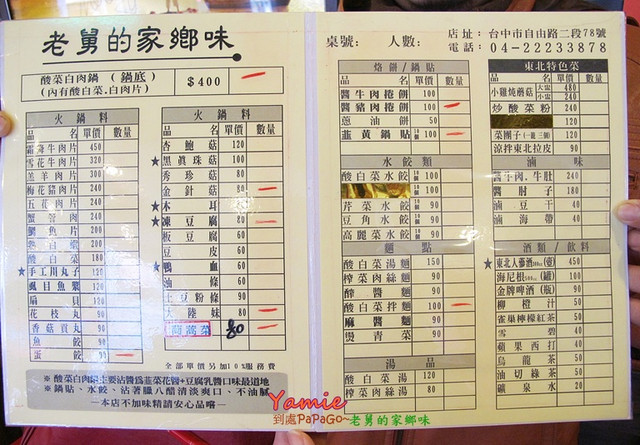 老舅的家鄉味
酸菜白肉鍋(鍋底)
(內有酸白菜.白肉片)
$400
桌號: 人數:
店址:台中市自由路二段78號
電話:04-22233878
火鍋料
品名 單價 數量
霜降牛肉片 450
雪花牛肉片 320
羔羊肉片 300
梅花豬肉片 240
五花肉片 240
蟹管肉 240
鯛魚片 200
酸白菜 180
★手工川丸子 120
虱目魚漿 120
扇貝 120
花枝丸 90
香菇貢丸 90
魚餃 90
蛋餃 90
火鍋料
品名 單價 數量
杏鮑菇 120
★黑真珠菇 100
秀珍菇 80
金針菇 80
★木耳 80
★凍豆腐 80
板豆腐 60
豆皮 60
★鴨血 60
油條 60
土豆粉條 90
大陸妹 80
茼蒿菜 80
全部單價另加10%服務費
※酸菜白肉鍋主要沾醬為韭菜花醬+豆腐乳醬口味最道地
※鍋貼、水餃、沾著臘八醋清淡爽口、不油膩
—本店不加味精請安心品嚐—
烙餅/鍋貼
品名 單價 數量
醬牛肉捲餅 100
醬豬肉捲餅 100
蔥油餅 50
韭黃鍋貼 10個 100
水餃類
酸白菜水餃 10個 100
10個 100
芹菜水餃 10個 90
豆角水餃 10個 90
高麗菜水餃 10個 90
麵點
酸白菜湯麵 150
榨菜肉絲麵 90
醡醬麵 90
酸白菜拌麵 100
麻醬麵 90
燙青菜 90
湯品
酸白菜湯 120
榨菜肉絲湯 80
東北特色菜
小雞燉蘑菇 大雷 480
小雷 240
炒酸菜粉 240
120
菜團子(一籠三個) 120
涼拌東北拉皮 90
滷味
醬牛肉.牛肚 240
醬肘子 180
滷豆干 40
滷海帶 40
酒類/飲料
★東北人蔘酒(壺) 450
海尼根(罐) 100
金牌啤酒(瓶) 90
柳橙汁 50
雀巢檸檬紅茶 50
雪碧 40
蘋果西打 40
烏龍茶 50
油切綠茶 50
礦泉水 20
Yamie
到處PaPaGo~老舅的家鄉味